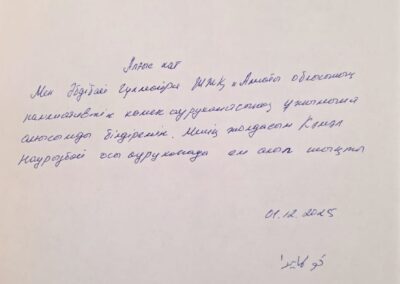 Алғыс хат
Мен Әбдібай Гүлмайра ШЖҚ "Алматы облысының
паллиативтік көмек ауруханасының ұжымына
алғысымды білдіремін. Менің жолдасым Қанал
Наурызбай осы ауруханада ем алып шықты
01.12.2025